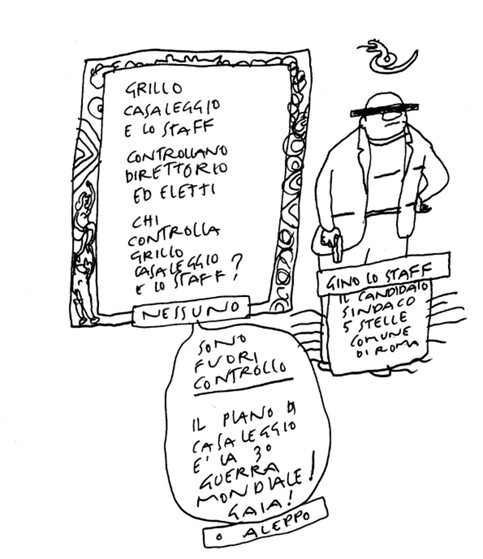 GRILLO
CASALEGGIO
E LO STAFF
CONTROLLANO
DIRETTORIO
ED ELETTI
CHI
CONTROLLA
GRILLO
CASALEGGIO
E LO STAFF?
NESSUNO
SONO
FUORI
CONTROLLO
IL PIANO DI
CASALEGGIO
E' LA 3°
GUERRA
MONDIALE!
GAIA!
O ALEPPO
GINO LO STAFF
IL CANDIDATO
SINDACO
5 STELLE
COMUNE
DI ROMA